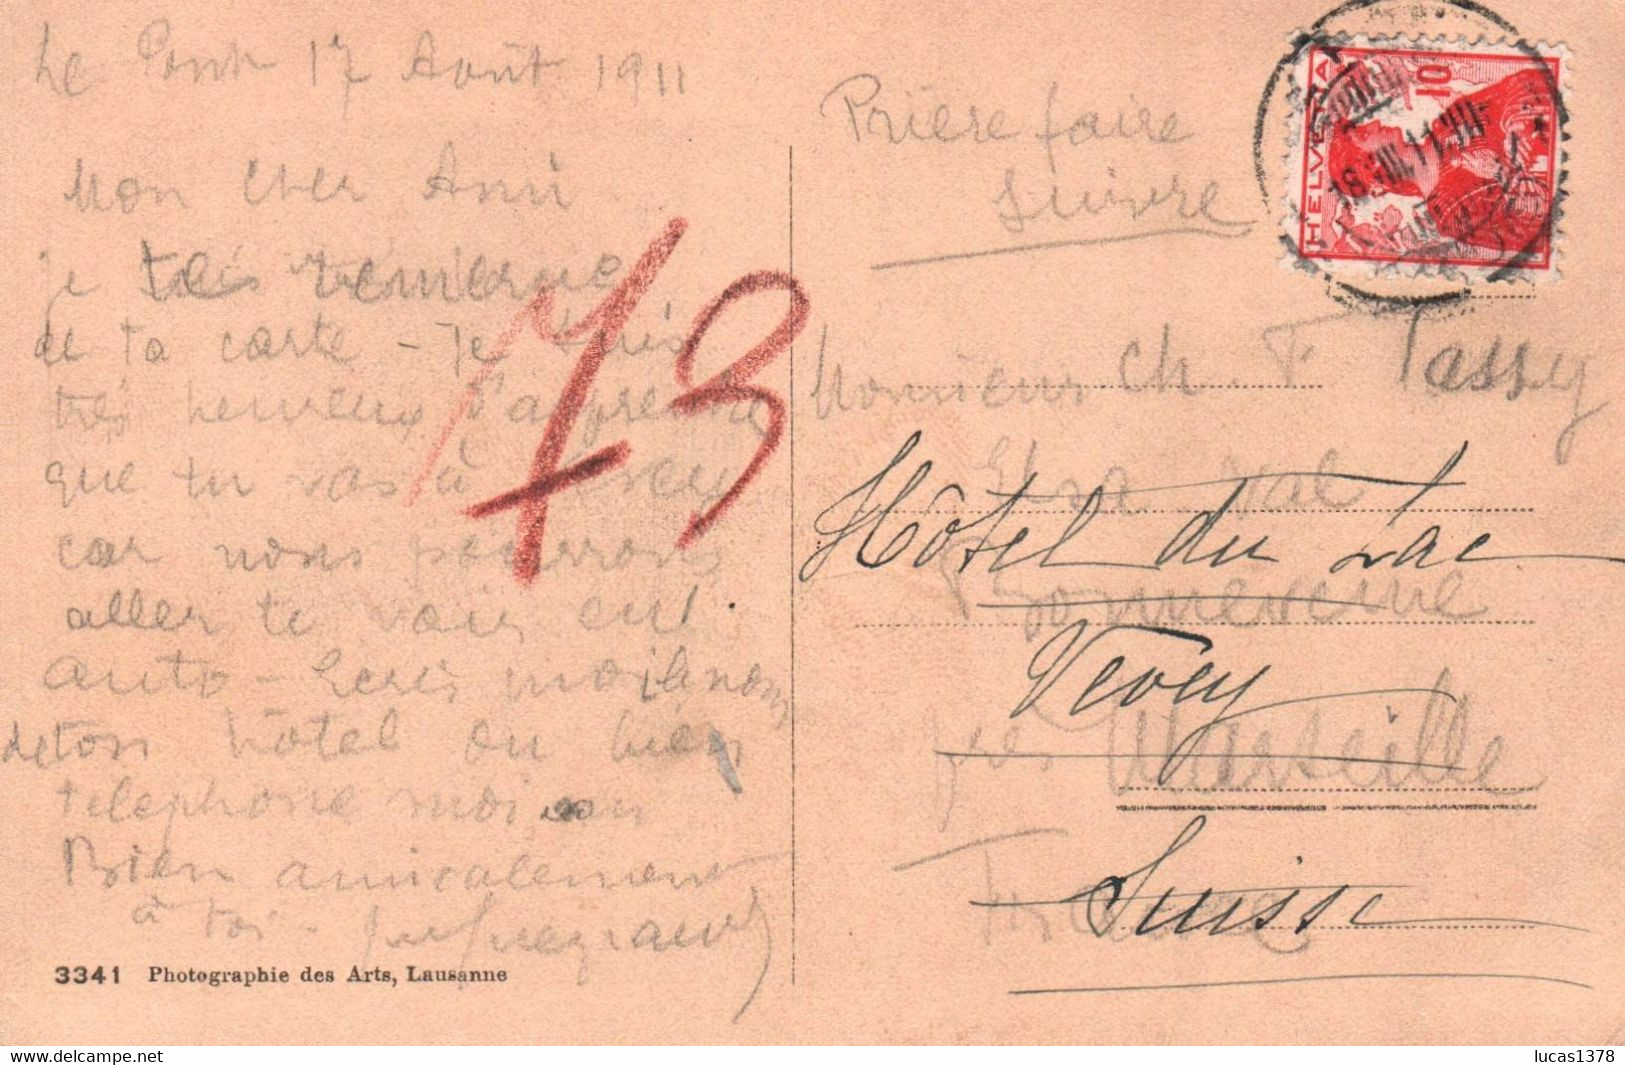 Le Pont 17 Août 1911
Mon cher Ami
je te remercie
de ta carte - Je suis
très heureux d'apprendre
que tu vas à Vevey
car nous pourrons
aller te voir en
auto - Ecris moi le nom
de ton hôtel ou bien
telephone moi
Bien amicalement
à toi -
3341 Photographie des Arts, Lausanne
73
Prière faire
suivre
HELVETIA
10
18.VIII.11.VIII
Monsieur Ch. F. Tassy
Hôtel du Lac
Bonneveine
Vevey
près Marseille
France
Suisse
delcampe.net
lucas1378